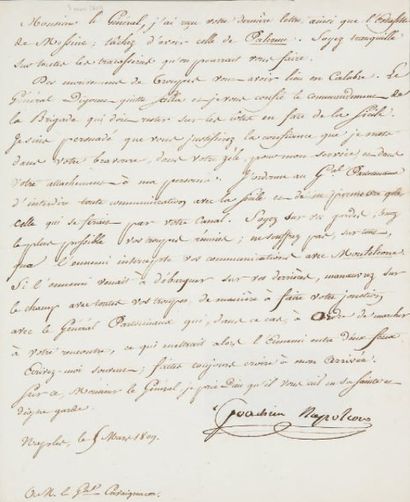 Monsieur le Général, j'ai reçu votre dernière lettre, ainsi que l'
de Messine; tâchez d'avoir celle de Palerme. Soyez tranquille
sur toutes les tracasseries qu'on pourrait vous faire.
Des mouvemens de troupes vont avoir lieu en Calabre. Le
Général Digonnet quitte et je vous confie le commandement de
la Brigade qui doit rester sur les côtes en face de la Sicile.
Je suis persuadé que vous justifierez la confiance que je mets
dans votre bravoure, dans votre zèle, pour mon service et dans
votre attachement à ma personne. J'ordonne au Gal Partouneaux
d'interdire toute communication avec la Sicile et de ne permettre que
celle qui se ferait par votre Canal. Soyez sur vos gardes, tenez
le plus possible vos troupes réunies; ne souffrez pas, surtout,
que l'ennemi intercepte vos communications avec Monteleone.
Si l'ennemi venait à débarquer sur vos derrières, manœuvrez sur
le champ avec toutes vos troupes, de manière à faire votre jonction
avec le Général Partouneaux qui, dans ce cas, a ordre de marcher
à votre rencontre, ce qui mettrait alors l'Ennemi entre deux feux.
Écrivez-moi souvent; faites toujours croire à mon arrivée.
Sur ce, Monsieur le Général, je prie Dieu qu'il vous ait en sa sainte et
digne garde.
Joachim Napoléon
Naples, le 5 Mars 1809.
A M. le Gal Cavaignac.